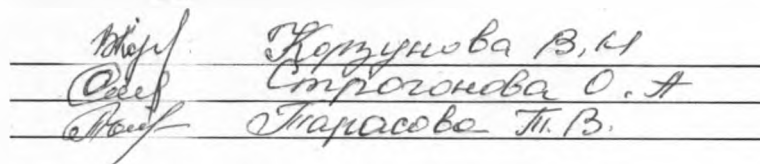 Корзунова В.И
Строгонова О.А
Тарасова Т.В.